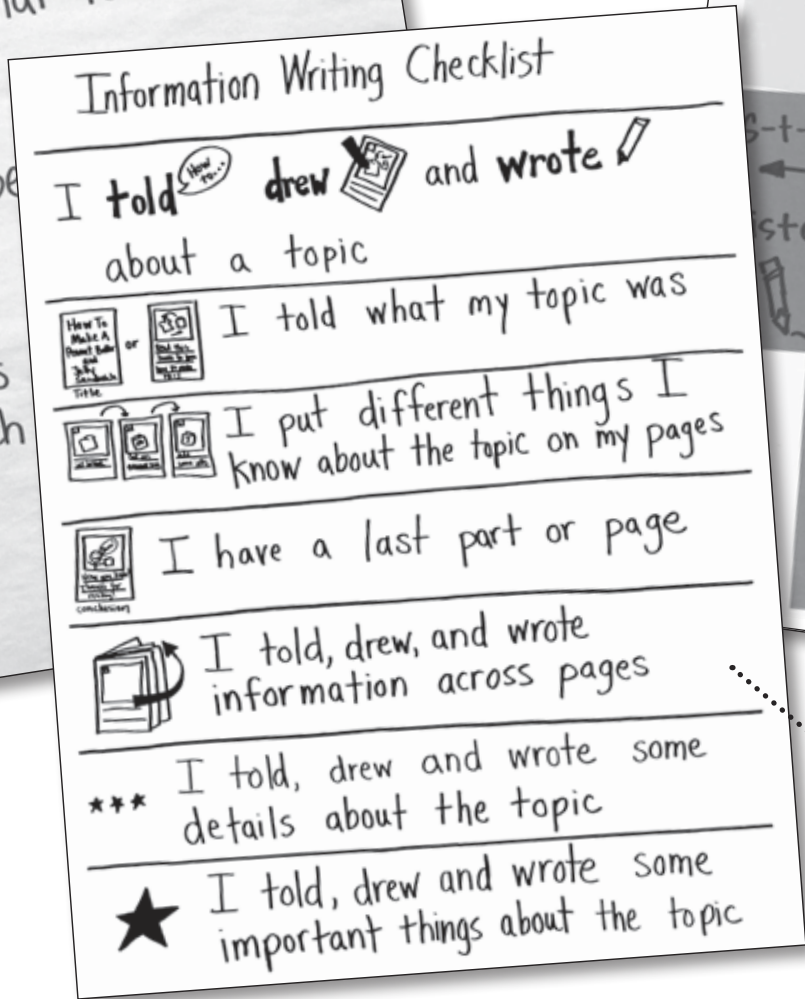 Information Writing Checklist
I told How to... drew and wrote
about a topic
How To
Make A
Peanut Butter
and
Jelly
Sandwich
or
Title
I told what my topic was
I put different things I
know about the topic on my pages
I have a last part or page
conclusion
I told, drew, and wrote
information across pages
I told, drew and wrote some
details about the topic
I told, drew and wrote some
important things about the topic